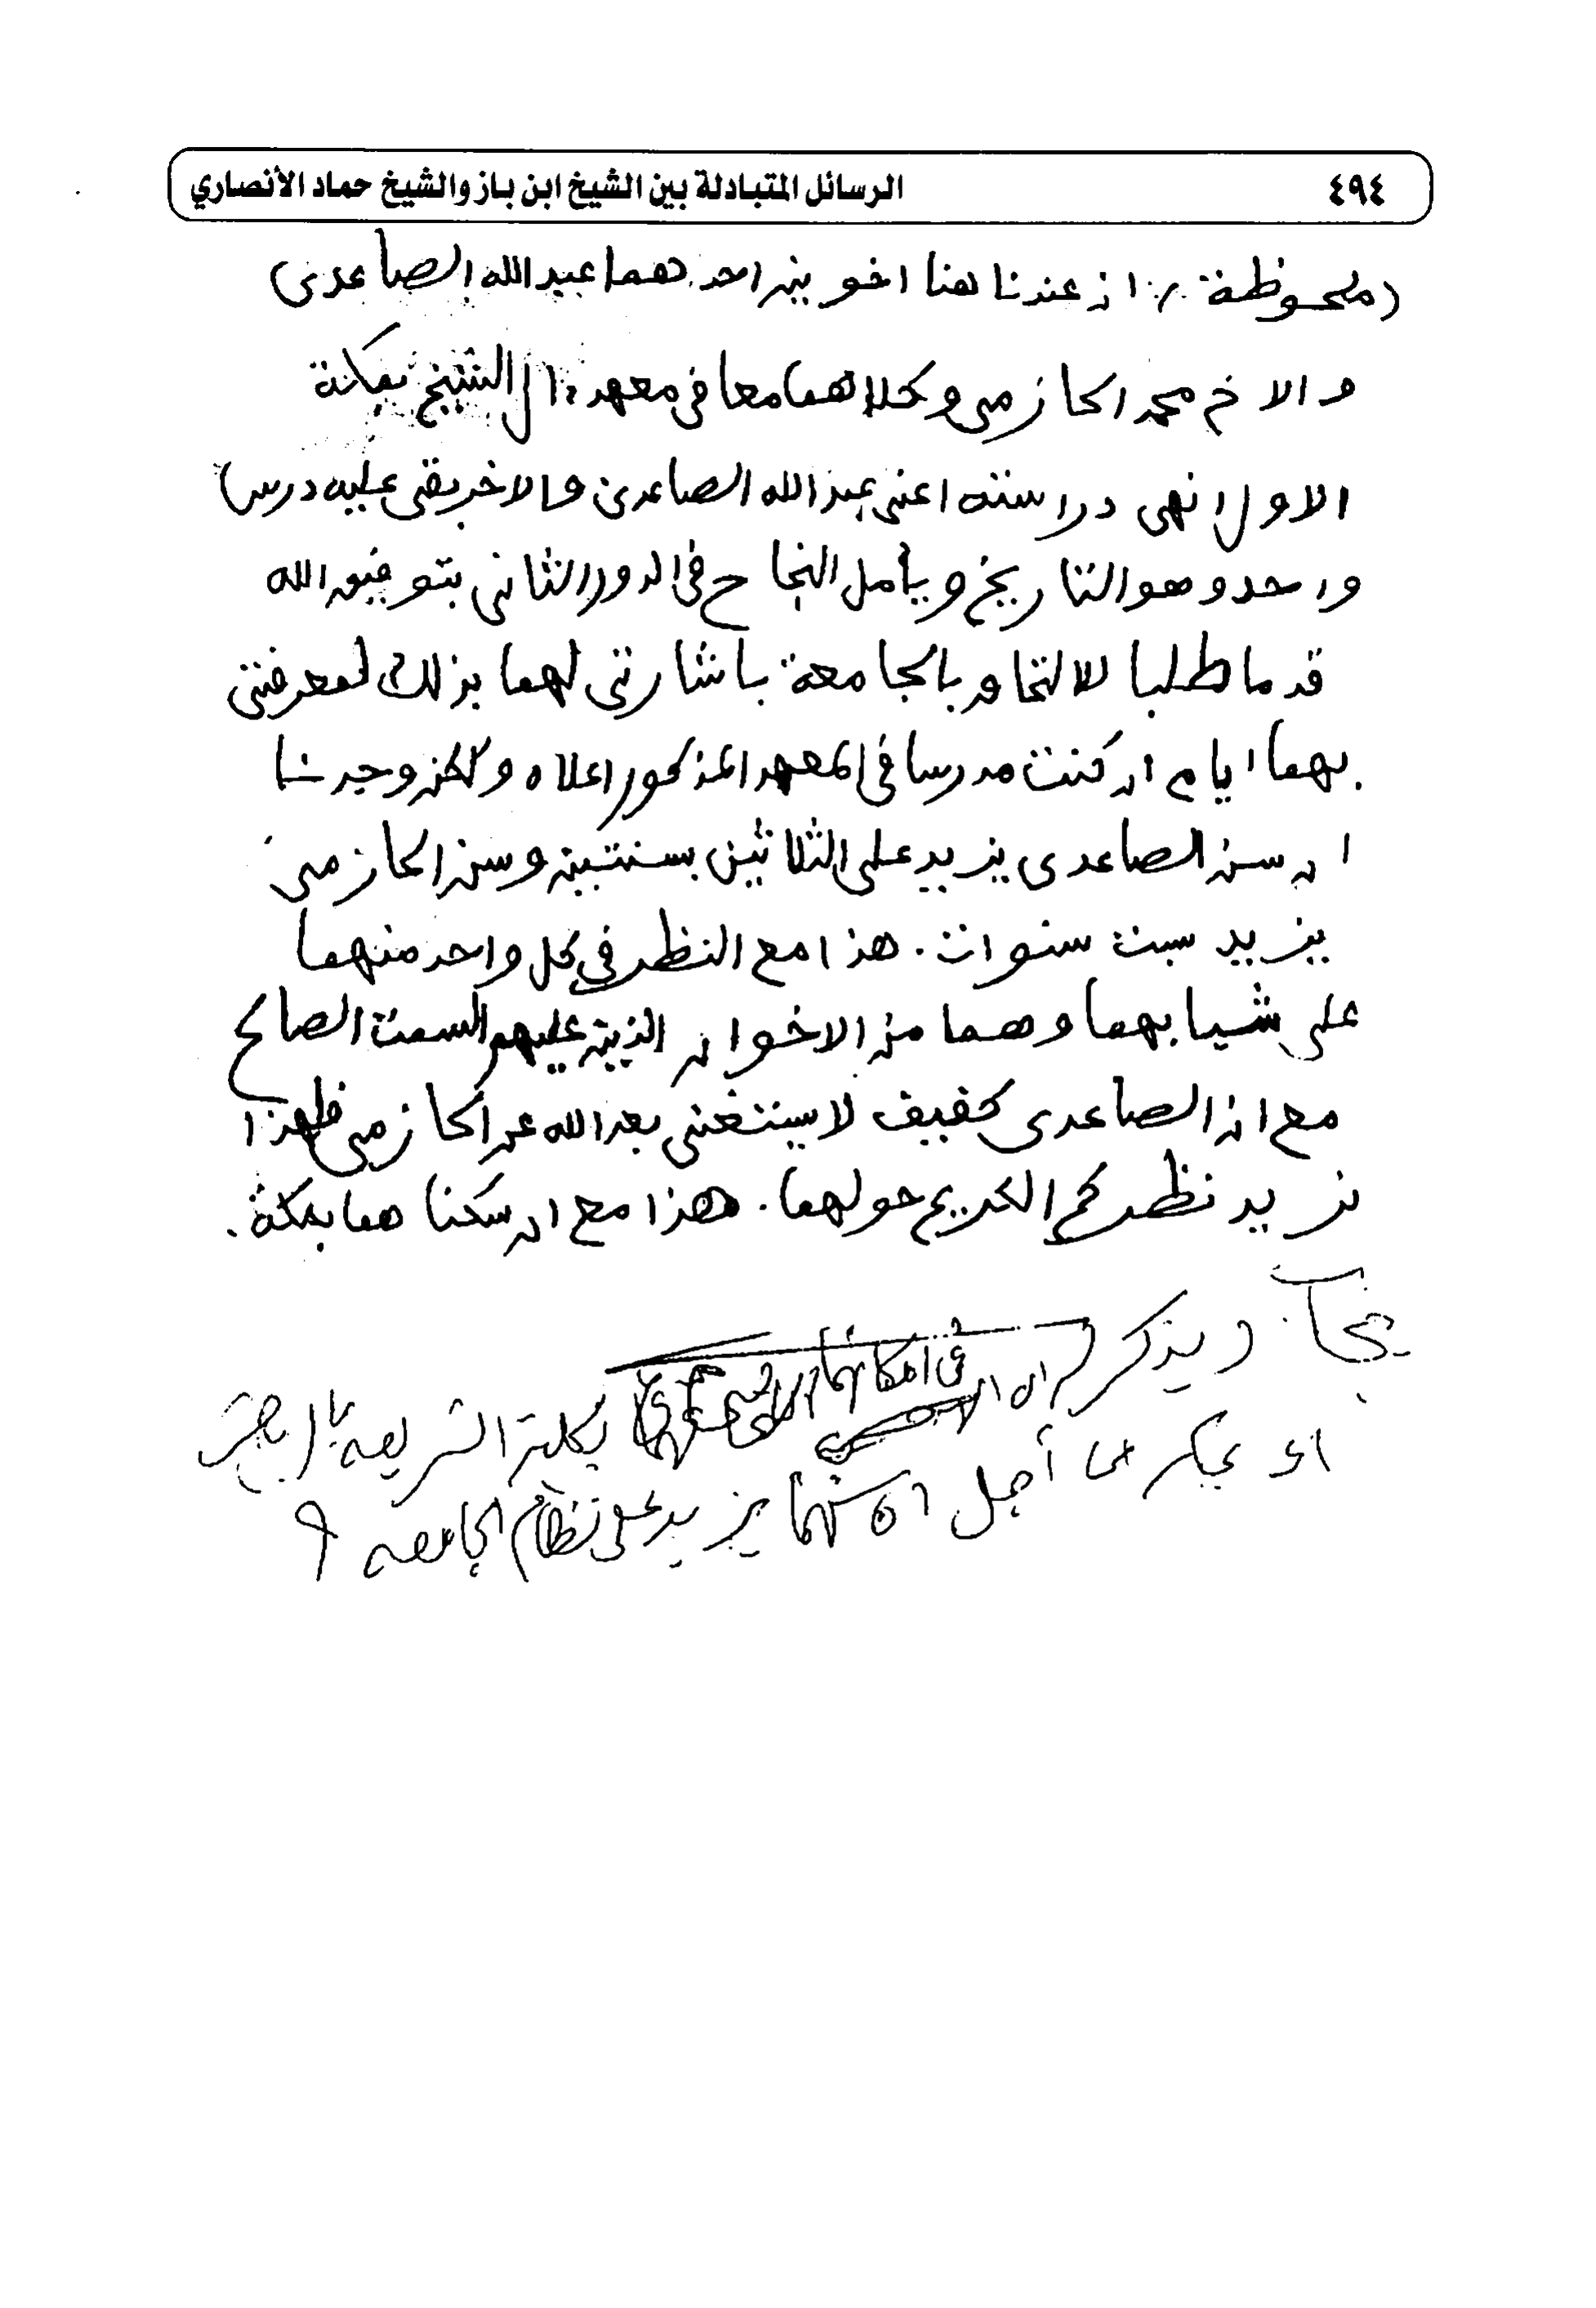 ٤٩٤ الرسائل المتبادلة بين الشيخ ابن باز والشيخ حماد الأنصاري
(ملحوظة: ان عندنا هنا اخوين احدهما عبد الله الصاعدى
والاخ محمد الحازمى وكلاهما معا فى معهد ال الشيخ بمكة
الاول انهى دراسته اعنى عبد الله الصاعدى والاخر بقى عليه درس
واحد وهو التاريخ ويأمل النجاح فى الدور الثانى بتوفيق الله
قدما طلبا للالتحاق بالجامعة باشارتى لهما بذلك لمعرفتى
بهما ايام ان كنت مدرسا فى المعهد المذكور اعلاه ولكن وجدنا
ان سن الصاعدى يزيد على الثلاثين بسنتين وسن الحازمى
يزيد ست سنوات. هذا مع النظر فى كل واحد منهما
على شبابهما وهما من الاخوان الذين عليهم السمت الصالح
مع ان الصاعدى كفيف لا يستغنى بعد الله عن الحازمى فلهذا
نريد نظركم الكريم حولهما. وهذا مع ان سكناهما بمكة.
يجاب ويذكر له ان فى امكانهما بكلية الشريعة بالرياض
او من أجل ان سنهما يزيد على نظام الجامعة